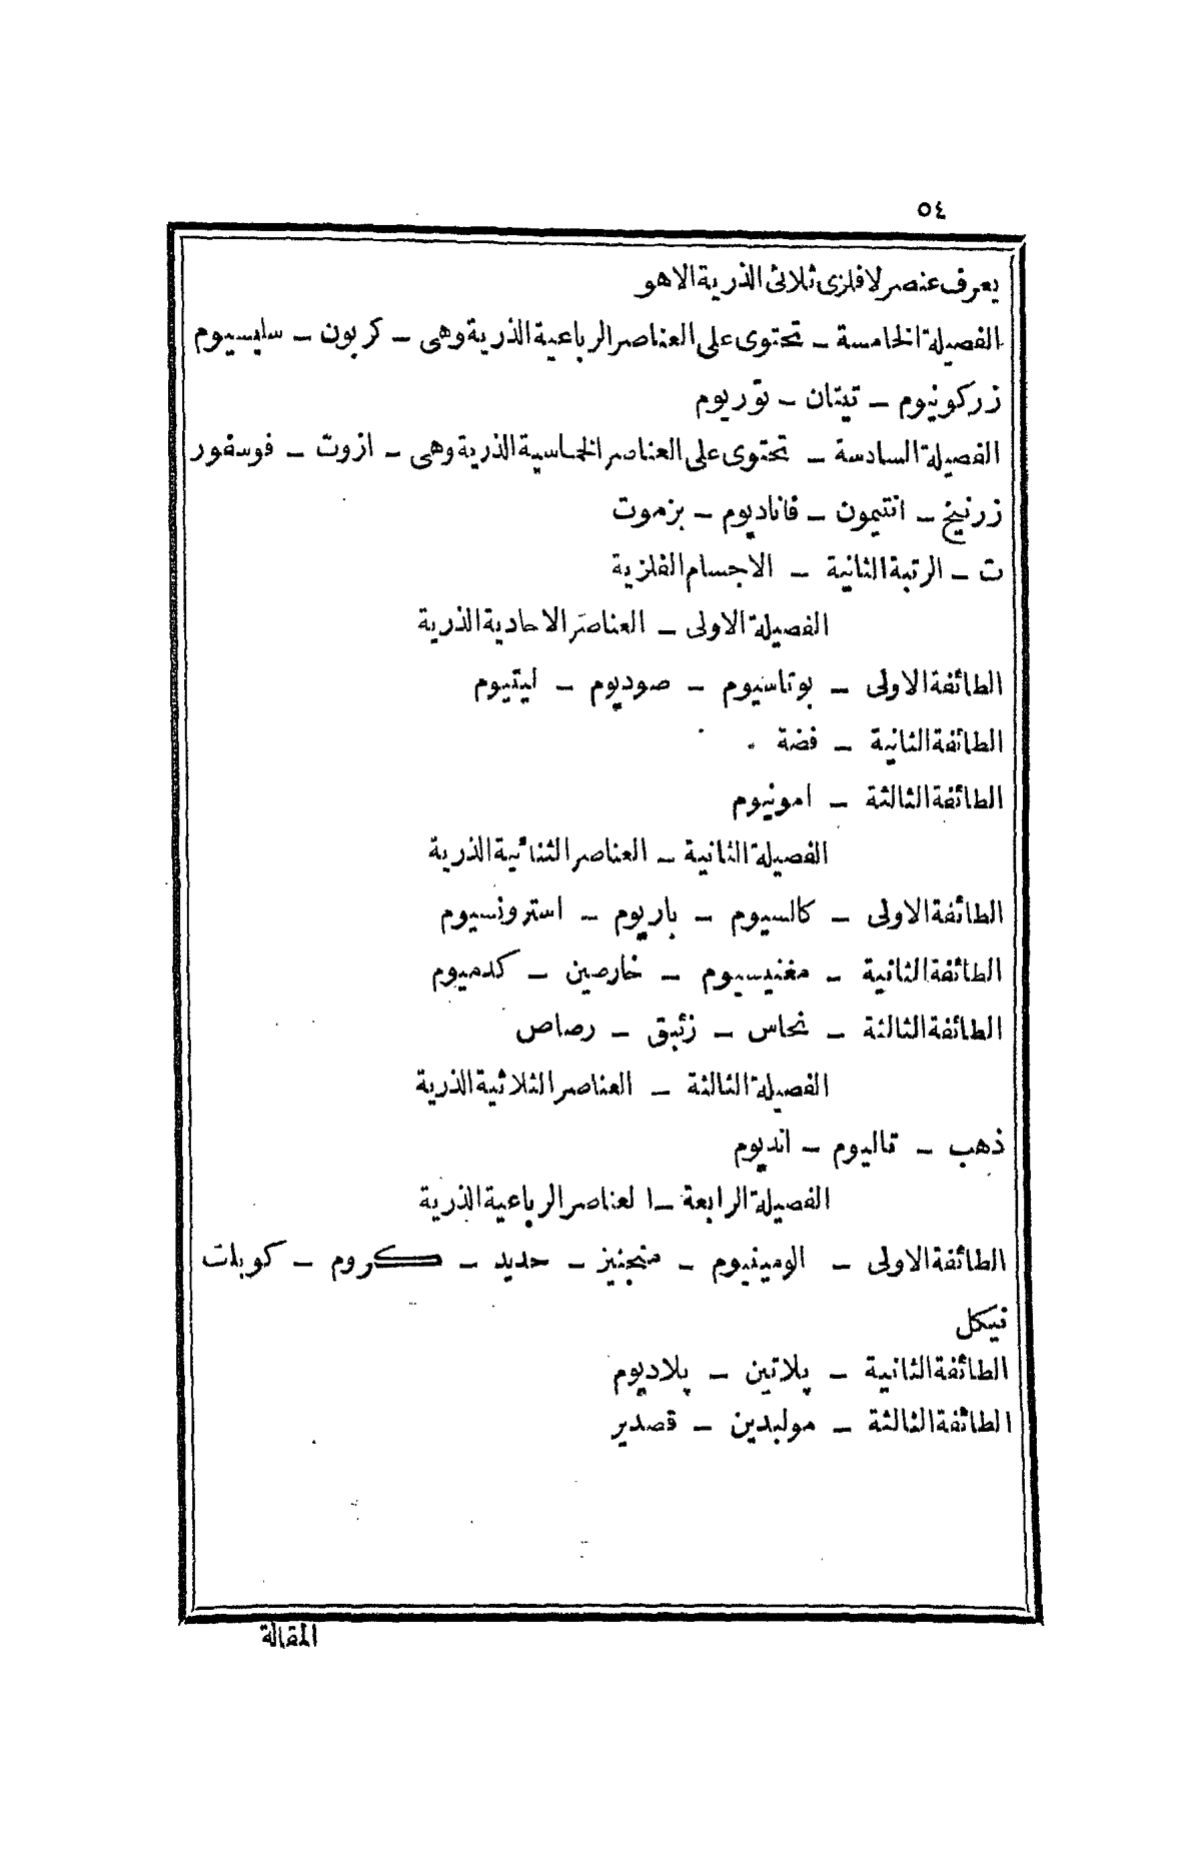 ٥٤
يعرف عنصر لافلزى ثلاثى الذرية الا هو
الفصيلة الخامسة ــ تحتوى على العناصر الرباعية الذرية وهى ــ كربون ــ سليسيوم
زركونيوم ــ تيتان ــ توريوم
الفصيلة السادسة ــ تحتوى على العناصر الخماسية الذرية وهى ــ ازوت ــ فوسفور
زرنيخ ــ انتيمون ــ ڤاناديوم ــ بزموت
ت ــ الرتبة الثانية ــ الاجسام الفلزية
الفصيلة الاولى ــ العناصر الاحادية الذرية
الطائفة الاولى ــ بوتاسيوم ــ صوديوم ــ ليتيوم
الطائفة الثانية ــ فضة
الطائفة الثالثة ــ امونيوم
الفصيلة الثانية ــ العناصر الثنائية الذرية
الطائفة الاولى ــ كالسيوم ــ باريوم ــ استرونسيوم
الطائفة الثانية ــ مغنيسيوم ــ خارصين ــ كدميوم
الطائفة الثالثة ــ نحاس ــ زئبق ــ رصاص
الفصيلة الثالثة ــ العناصر الثلاثية الذرية
ذهب ــ تاليوم ــ انديوم
الفصيلة الرابعة ــ العناصر الرباعية الذرية
الطائفة الاولى ــ الومينيوم ــ منجنيز ــ حديد ــ كروم ــ كوبلت
نيكل
الطائفة الثانية ــ پلاتين ــ پلاديوم
الطائفة الثالثة ــ موليدين ــ قصدير
المقالة